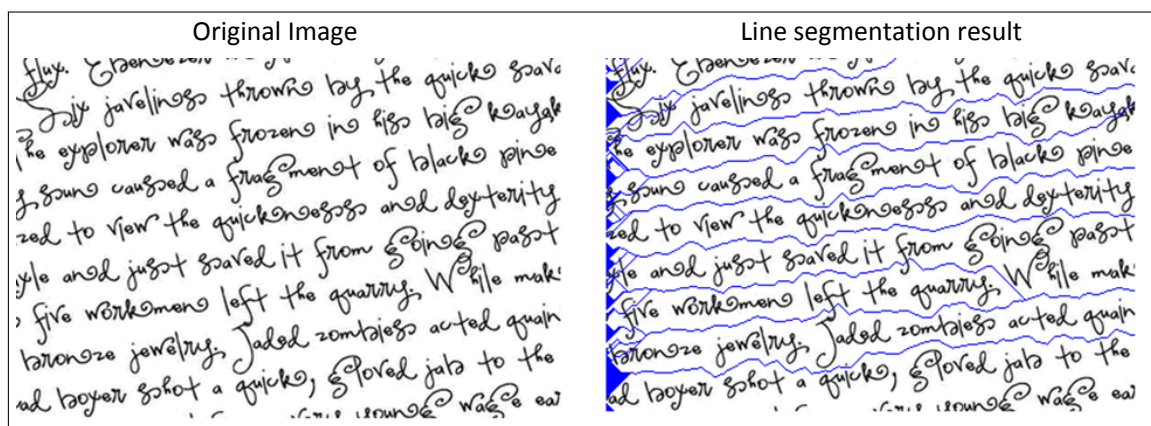 Original Image
flux.
Six javelins thrown by the quick sava
he explorer was frozen in his big kayak
caused a fragment of black pine
zed to view the quickness and dexterity
yle and just saved it from going past
five workmen left the quarry. While mak
bronze jewelry. Jaded zombies acted quain
ad boxer shot a quick, gloved jab to the
young wage ear
Line segmentation result
flux.
Six javelins thrown by the quick sava
he explorer was frozen in his big kayak
caused a fragment of black pine
zed to view the quickness and dexterity
yle and just saved it from going past
five workmen left the quarry. While mak
bronze jewelry. Jaded zombies acted quain
ad boxer shot a quick, gloved jab to the
young wage ear